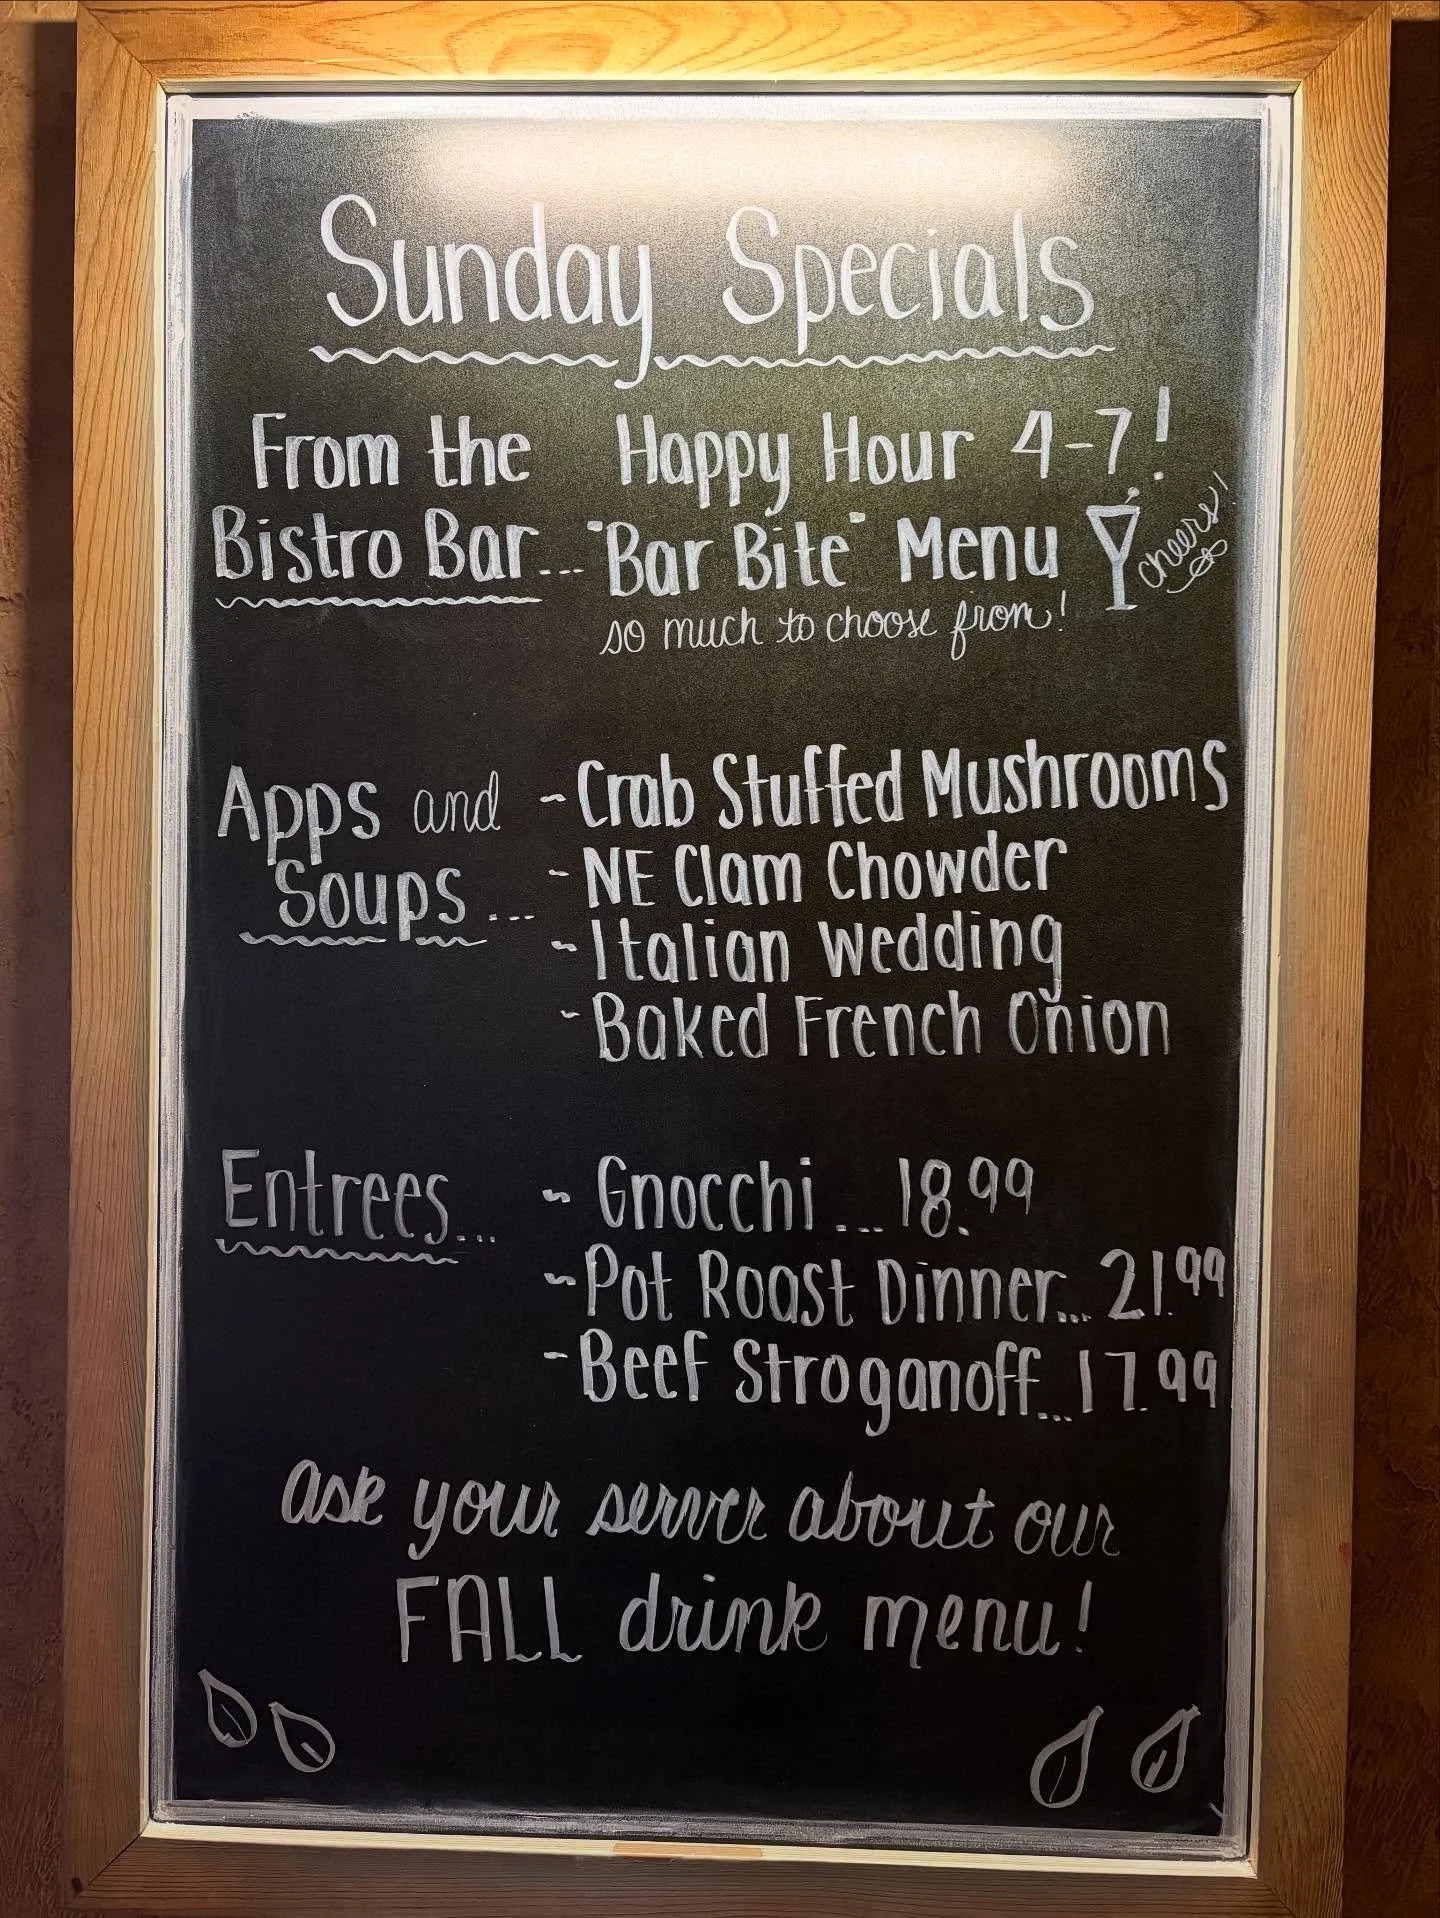 Sunday Specials
From the
Bistro Bar...
Happy Hour 4-7!
"Bar Bite" Menu
cheers!
so much to choose from!
Apps and
Soups...
~Crab Stuffed Mushrooms
~NE Clam Chowder
~Italian Wedding
~Baked French Onion
Entrees...
~ Gnocchi...18.99
~Pot Roast Dinner...21.99
~Beef Stroganoff...17.99
ask your server about our
FALL drink menu!